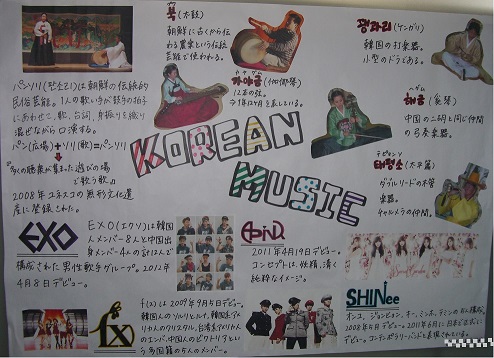 パンソリ(판소리)は朝鮮の伝統的
民俗芸能。1人の歌い手が鼓手の拍子
にあわせて、歌、台詞、身振りを織り
混ぜながら口演する。
パン(広場)+ソリ(歌)=パンソリ
『多くの聴衆が集まった遊びの場
で歌う歌』
2008年ユネスコの無形文化遺
産に登録された。
북(太鼓)
朝鮮に古くから伝
わる農楽という伝統
芸能で使われる。
カヤグム
가야금(伽倻琴)
12本の弦。
꽹과리(ケンガリ)
韓国の打楽器。
小型のドラである。
ヘグム
해금(奚琴)
中国の二胡と同じ仲間
の弓奏楽器。
テピョンソ
태평소(太平簫)
ダブルリードの木管
楽器。
チャルメラの仲間。
KOREAN
MUSIC
EXO
EXO(エクソ)は韓国
人メンバー8人と中国出
身メンバー4人の計12人で
構成された男性歌手グループ。2012年
4月8日デビュー。
f(x)
f(x)は2009年9月5日デビュー。
韓国人のソルリとルナ、韓国系アメ
リカ人のクリスタル、台湾系アメリカ人
のエンバ、中国人のビクトリアとい
う多国籍の5人のメンバー。
Apink
2011年4月19日デビュー。
コンセプトは、妖精、清く
純粋なイメージ。
SHINee
オンユ、ジョンヒョン、キー、ミンホ、テミンの5人構成。
2008年5月デビュー。2011年6月に日本デビュー